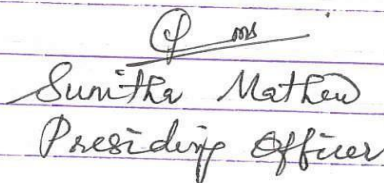 Sunitha Mathew
Presiding Officer